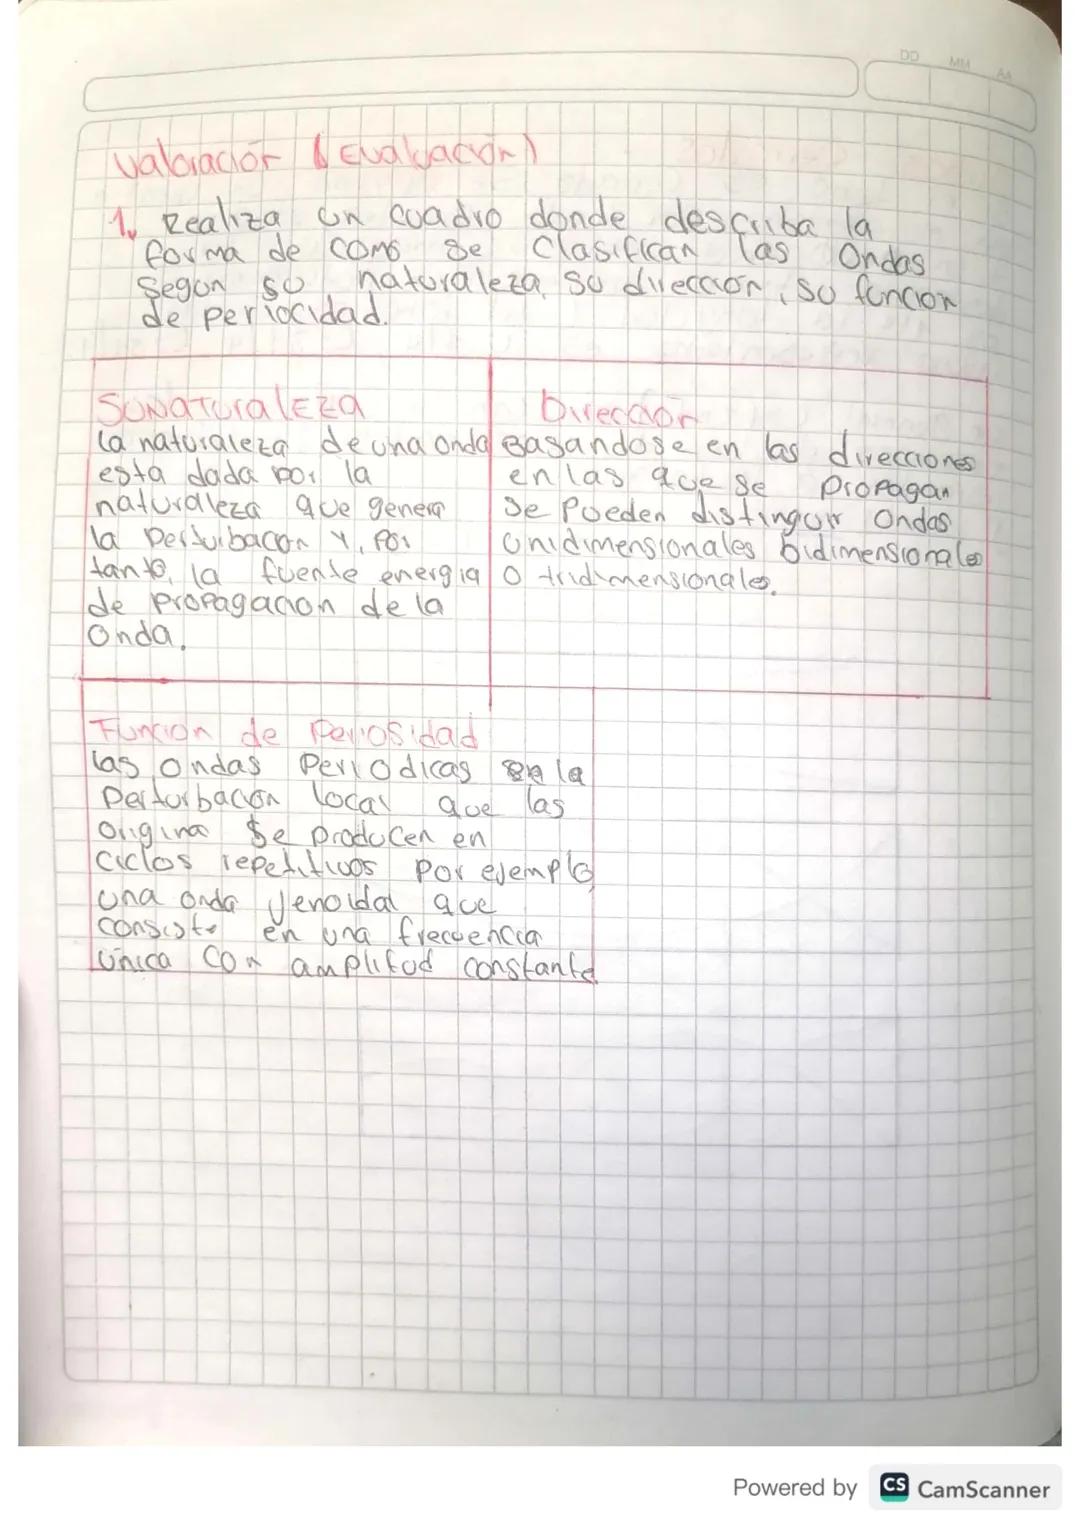 DD MM AA
Valoración (Evaluación)
1. Realiza un cuadro donde describa la
forma de como se Clasifican las Ondas
Segun su naturaleza, su dirección, su funcion
de periocidad.
Su Naturaleza
la naturaleza de una onda
esta dada por la
naturaleza que genera
la Perturbacon y, por
tanto, la fuente energia
de propagacion de la
Onda.
Dirección
Basandose en las direcciones
en las que se propagan
se Pueden distinguir Ondas
Unidimensionales bidimensionales
o tridimensionales.
Funcion de Periosidad
las Ondas Periodicas en la
Perturbación local que las
Origina se producen en
Ciclos repetitivos por ejemplo
una onda que
consiste en una frecuencia
única con amplitud constante
Powered by CS CamScanner